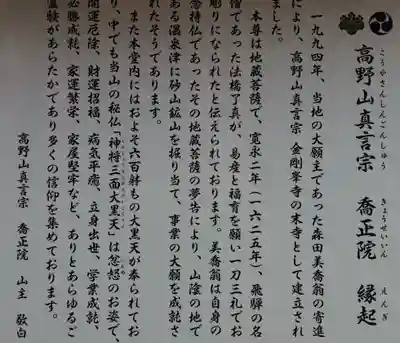 高野山真言宗 喬正院 縁起
こうやさんしんごんしゅう きょうせいいん えんぎ
一九九四年、当地の大願主であった森田美喬翁の寄進
により、高野山真言宗 金剛峯寺の末寺として建立され
ました。
本尊は地蔵菩薩で、寛永二年(一六二五年)、飛騨の名
僧であった法橋了真が、易産と福育を願い一刀三礼でお
彫りになられたと伝えられております。美喬翁は自身の
念持仏であったその地蔵菩薩の夢告により、山陰の地で
ある温泉津に砂山鉱山を掘り当て、事業の大願を成就さ
れたそうであります。
また本堂内にはおよそ六百躰もの大黒天が奉られてお
り、中でも当山の秘仏「神特三面大黒天」は忿怒のお姿で、
開運厄除、財運招福、病気平癒、立身出世、学業成就、
必勝成就、家運繁栄、家屋堅牢など、ありとあらゆるご
霊験があらたかであり多くの信仰を集めております。
高野山真言宗 喬正院 山主 敬白